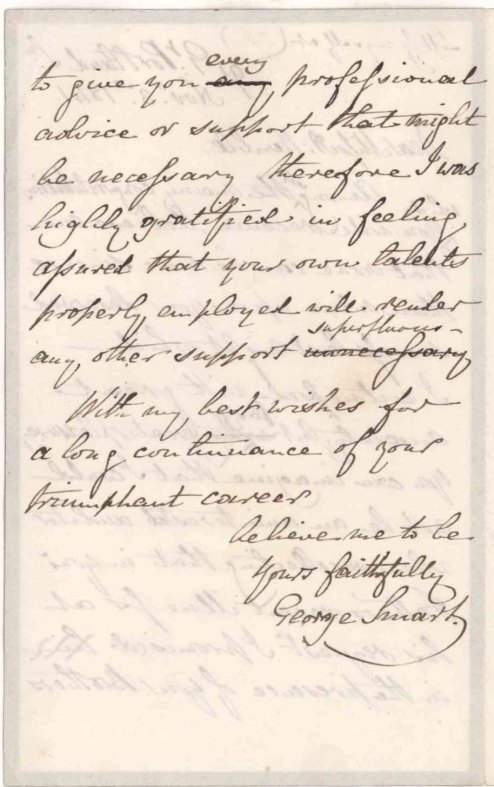 every
to give you any professional
advice or support that might
be necessary therefore I was
highly gratified in feeling
assured that your own talents
properly employed will render
superfluous -
any other support unnecessary
With my best wishes for
a long continuance of your
triumphant career
believe me to be
Yours faithfully
George Smart.